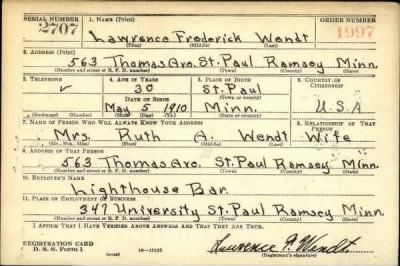 SERIAL NUMBER 1. NAME (Print) ORDER NUMBER
2707 Lawrence Frederick Wendt 1997
(First) (Middle) (Last)
2. ADDRESS (Print)
563 Thomas Ave. St. Paul Ramsey Minn.
(Number and street or R. F. D. number) (Town) (County) (State)
3. TELEPHONE 4. AGE IN YEARS 5. PLACE OF BIRTH 6. COUNTRY OF CITIZENSHIP
30 St. Paul
DATE OF BIRTH (Town or county)
May 5 1910 Minn. U.S.A
(Exchange) (Number) (Mo.) (Day) (Yr.) (State or country)
7. NAME OF PERSON WHO WILL ALWAYS KNOW YOUR ADDRESS 8. RELATIONSHIP OF THAT PERSON
Mrs. Ruth A. Wendt Wife
(Mr., Mrs., Miss) (First) (Middle) (Last)
9. ADDRESS OF THAT PERSON
563 Thomas Ave. St. Paul Ramsey Minn.
(Number and street or R. F. D. number) (Town) (County) (State)
10. EMPLOYER'S NAME
Lighthouse Bar.
11. PLACE OF EMPLOYMENT OR BUSINESS
347 University St. Paul Ramsey Minn.
(Number and street or R. F. D. number) (Town) (County) (State)
I AFFIRM THAT I HAVE VERIFIED ABOVE ANSWERS AND THAT THEY ARE TRUE.
REGISTRATION CARD
D. S. S. Form 1 16—17105 Lawrence F. Wendt
(Registrant's signature)